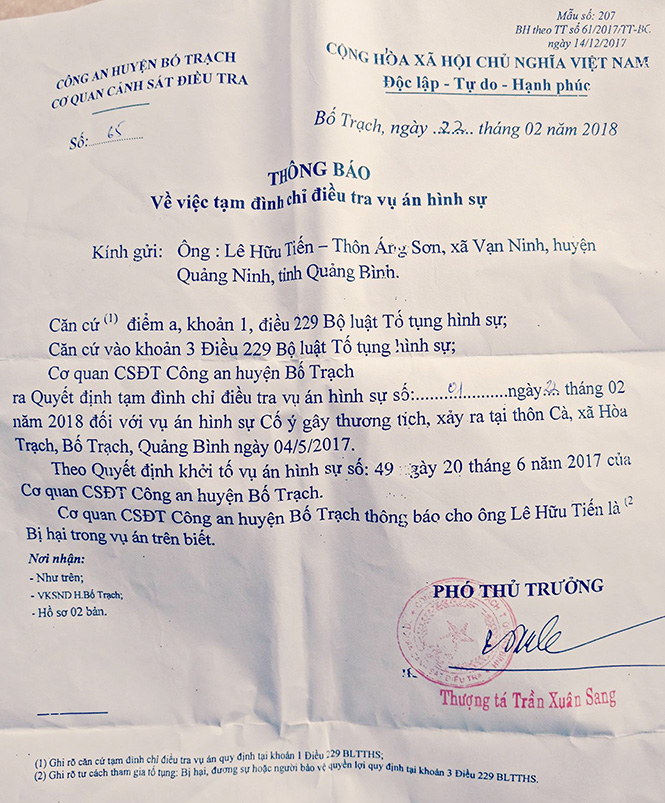 Mẫu số: 207
BH theo TT số 61/2017/TT-BC
ngày 14/12/2017
CÔNG AN HUYỆN BỐ TRẠCH
CƠ QUAN CẢNH SÁT ĐIỀU TRA
Số: 65
CỘNG HÒA XÃ HỘI CHỦ NGHĨA VIỆT NAM
Độc lập - Tự do - Hạnh phúc
Bố Trạch, ngày ..22.. tháng 02 năm 2018
THÔNG BÁO
Về việc tạm đình chỉ điều tra vụ án hình sự
Kính gửi: Ông : Lê Hữu Tiến – Thôn Áng Sơn, xã Vạn Ninh, huyện
Quảng Ninh, tỉnh Quảng Bình.
Căn cứ (1) điểm a, khoản 1, điều 229 Bộ luật Tố tụng hình sự;
Căn cứ vào khoản 3 Điều 229 Bộ luật Tố tụng hình sự;
Cơ quan CSĐT Công an huyện Bố Trạch
ra Quyết định tạm đình chỉ điều tra vụ án hình sự số:.......01..........ngày 22 tháng 02
năm 2018 đối với vụ án hình sự Cố ý gây thương tích, xảy ra tại thôn Cà, xã Hòa
Trạch, Bố Trạch, Quảng Bình ngày 04/5/2017.
Theo Quyết định khởi tố vụ án hình sự số: 49 ngày 20 tháng 6 năm 2017 của
Cơ quan CSĐT Công an huyện Bố Trạch.
Cơ quan CSĐT Công an huyện Bố Trạch thông báo cho ông Lê Hữu Tiến là (2
Bị hại trong vụ án trên biết.
Nơi nhận:
- Như trên;
- VKSND H.Bố Trạch;
- Hồ sơ 02 bản.
PHÓ THỦ TRƯỞNG
Thượng tá Trần Xuân Sang
(1) Ghi rõ căn cứ tạm đình chỉ điều tra vụ án quy định tại khoản 1 Điều 229 BLTTHS;
(2) Ghi rõ tư cách tham gia tố tụng: Bị hại, đương sự hoặc người bảo vệ quyền lợi quy định tại khoản 3 Điều 229 BLTTHS.